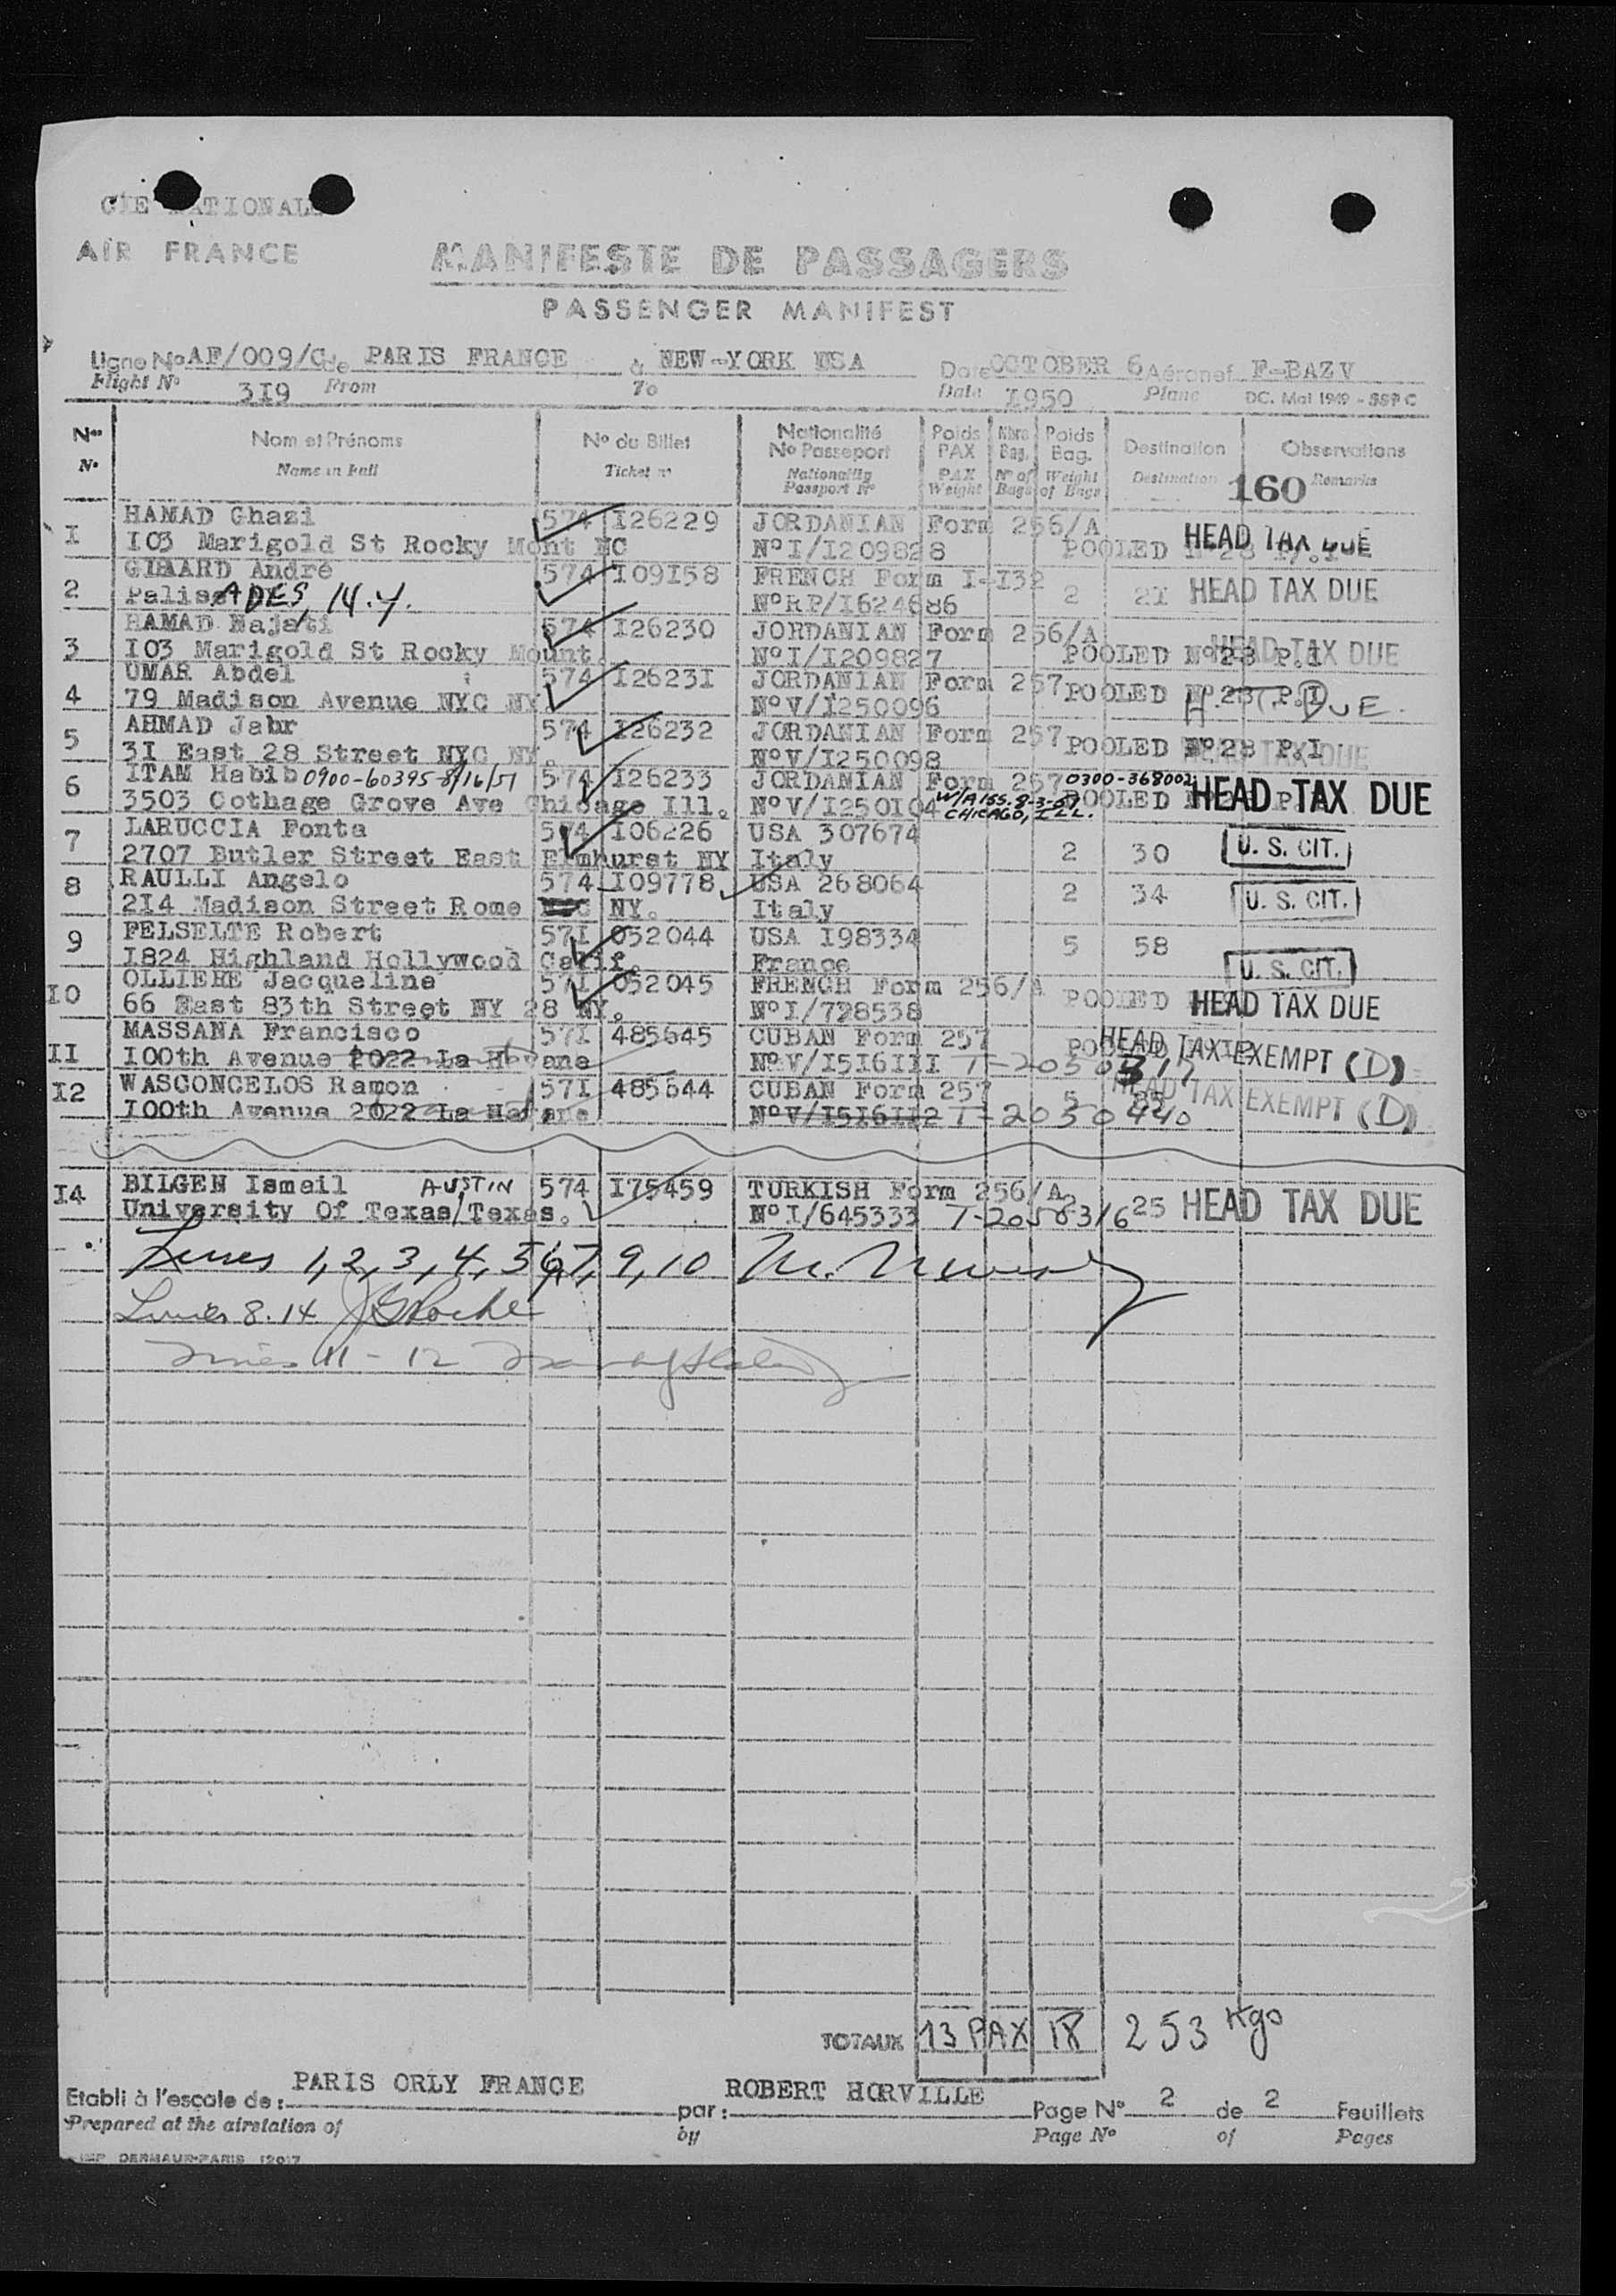 CIE NATIONALE
AIR FRANCE
MANIFESTE DE PASSAGERS
PASSENGER MANIFEST
Ligne No AF/009/C de PARIS FRANCE à NEW-YORK USA Date OCTOBER 6 Aéronef F-BAZV
Flight No 3I9 From To Date I950 Plane DC. Mai 1949 - SSP C
Nos Nom et Prénoms No du Billet Nationalité No Passeport Poids PAX Nbre Bag. Poids Bag. Destination Observations
No Name in Full Ticket no Nationality Passport No PAX Weight No of Bags Weight of Bags Destination 160 Remarks
I HAMAD Ghazi 574 I26229 JORDANIAN Form 256/A HEAD TAX DUE
I03 Marigold St Rocky Mont NC No I/I209828 POOLED
2 GIRARD André 574 I09I58 FRENCH Form I-I32
PalisADES, N.Y. No RP/I624686 2 2I HEAD TAX DUE
3 HAMAD Najati 574 I26230 JORDANIAN Form 256/A HEAD TAX DUE
I03 Marigold St Rocky Mount. No I/I209827 POOLED No 23 P.I
4 UMAR Abdel 574 I2623I JORDANIAN Form 257 POOLED No 23 P.I
79 Madison Avenue NYC NY. No V/I250096 H.T. DUE.
5 AHMAD Jabr 574 I26232 JORDANIAN Form 257 POOLED No 23 P.I
3I East 28 Street NYC NY. No V/I250098 HEAD TAX DUE
6 ITAM Habib 0900-60395-8/16/51 574 I26233 JORDANIAN Form 257 0300-368002
3503 Cothage Grove Ave Chicago Ill. No V/I250I04 W/A ISS. 8-3-51 CHICAGO, ILL. POOLED HEAD TAX DUE
7 LARUCCIA Fonta 574 I06226 USA 307674
2707 Butler Street East Elmhurst NY Italy 2 30 U. S. CIT.
8 RAULLI Angelo 574 I09778 USA 268064 2 34 U. S. CIT.
2I4 Madison Street Rome NY. Italy
9 PELSEITE Robert 57I 052044 USA I98334 5 58
I824 Highland Hollywood Calif. France U. S. CIT.
I0 OLLIERE Jacqueline 57I 052045 FRENCH Form 256/A
66 East 83th Street NY 28 NY. No I/728538 POOLED HEAD TAX DUE
II MASSANA Francisco 57I 485645 CUBAN Form 257 HEAD TAX EXEMPT (D)
I00th Avenue 2022 La Havane No V/I5I6III T-2050317
I2 WASCONCELOS Ramon 57I 485644 CUBAN Form 257 5 85 HEAD TAX EXEMPT (D)
I00th Avenue 2022 La Havane No V/I5I6II2 T-2050440
I4 BILGEN Ismail AUSTIN 574 I75459 TURKISH Form 256/A 2 25 HEAD TAX DUE
University Of Texas/Texas. No I/645333 T-2050316
Lines 1, 2, 3, 4, 5, 6, 7, 9, 10
Lines 8. 14
Lines 11 - 12
TOTAUX 13 PAX 18 253 Kgs
Etabli à l'escale de : PARIS ORLY FRANCE par : ROBERT HORVILLE Page No 2 de 2 Feuillets
Prepared at the airstation of by Page No of Pages
IMP DERMAUR-PARIS 12017